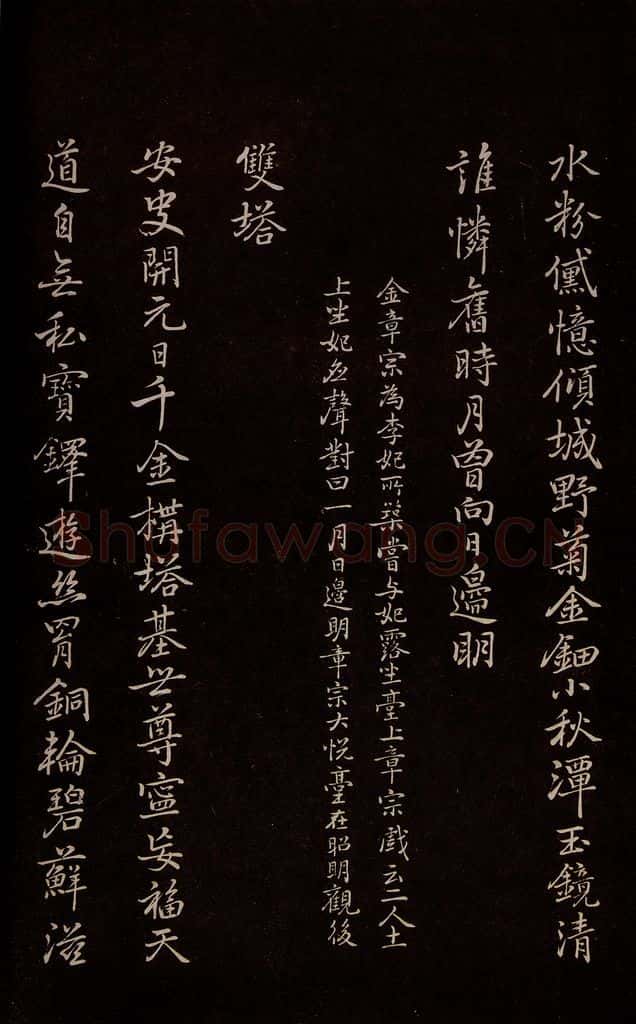 水粉儻憶傾城野菊金鈿小秋潭玉鏡清
誰憐舊時月曾向日邊明
金章宗為李妃所築嘗与妃露坐臺上章宗戲云二人土
上坐妃應聲對曰一月日邊明章宗大悅臺在昭明觀後
雙塔
安史開元日千金構塔基世尊寧妄福天
道自無私寶鐸遊絲罥銅輪碧蘚滋
Shufawang.CN